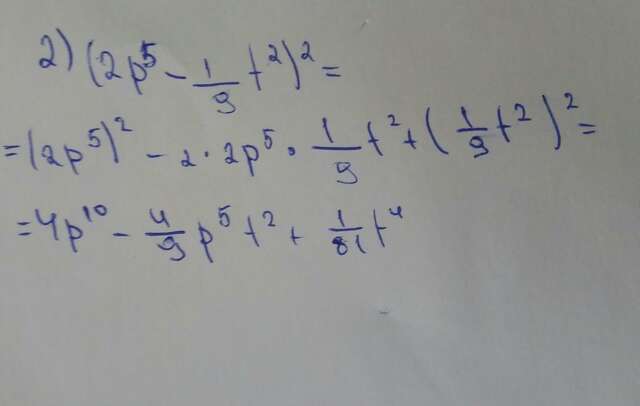 2) (2p⁵ - 1/9 t²)² =
= (2p⁵)² - 2 · 2p⁵ · 1/9 t² + (1/9 t²)² =
= 4p¹⁰ - 4/9 p⁵ t² + 1/81 t⁴